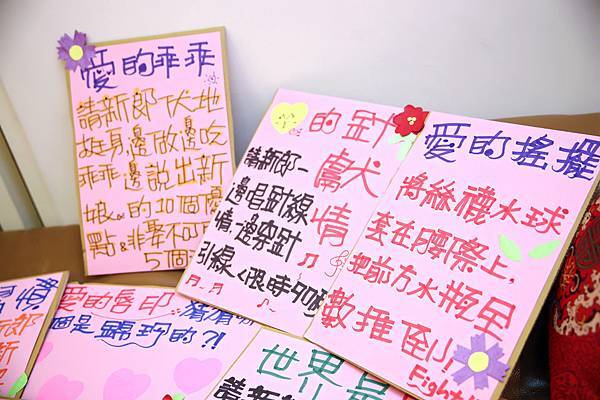 愛的乖乖
請新郎伏地
挺身,邊做邊吃
乖乖邊說出新
娘的10個優
點&非娶不可
5個
的針
獻
情
請新郎一
邊唱針線
情,邊穿針
引線<限時
愛的搖擺
將絲襪水球
套在腰際上,
把前方水瓶全
數推倒!
Fight
愛的唇印
個是歸玲的?!
世界
請新